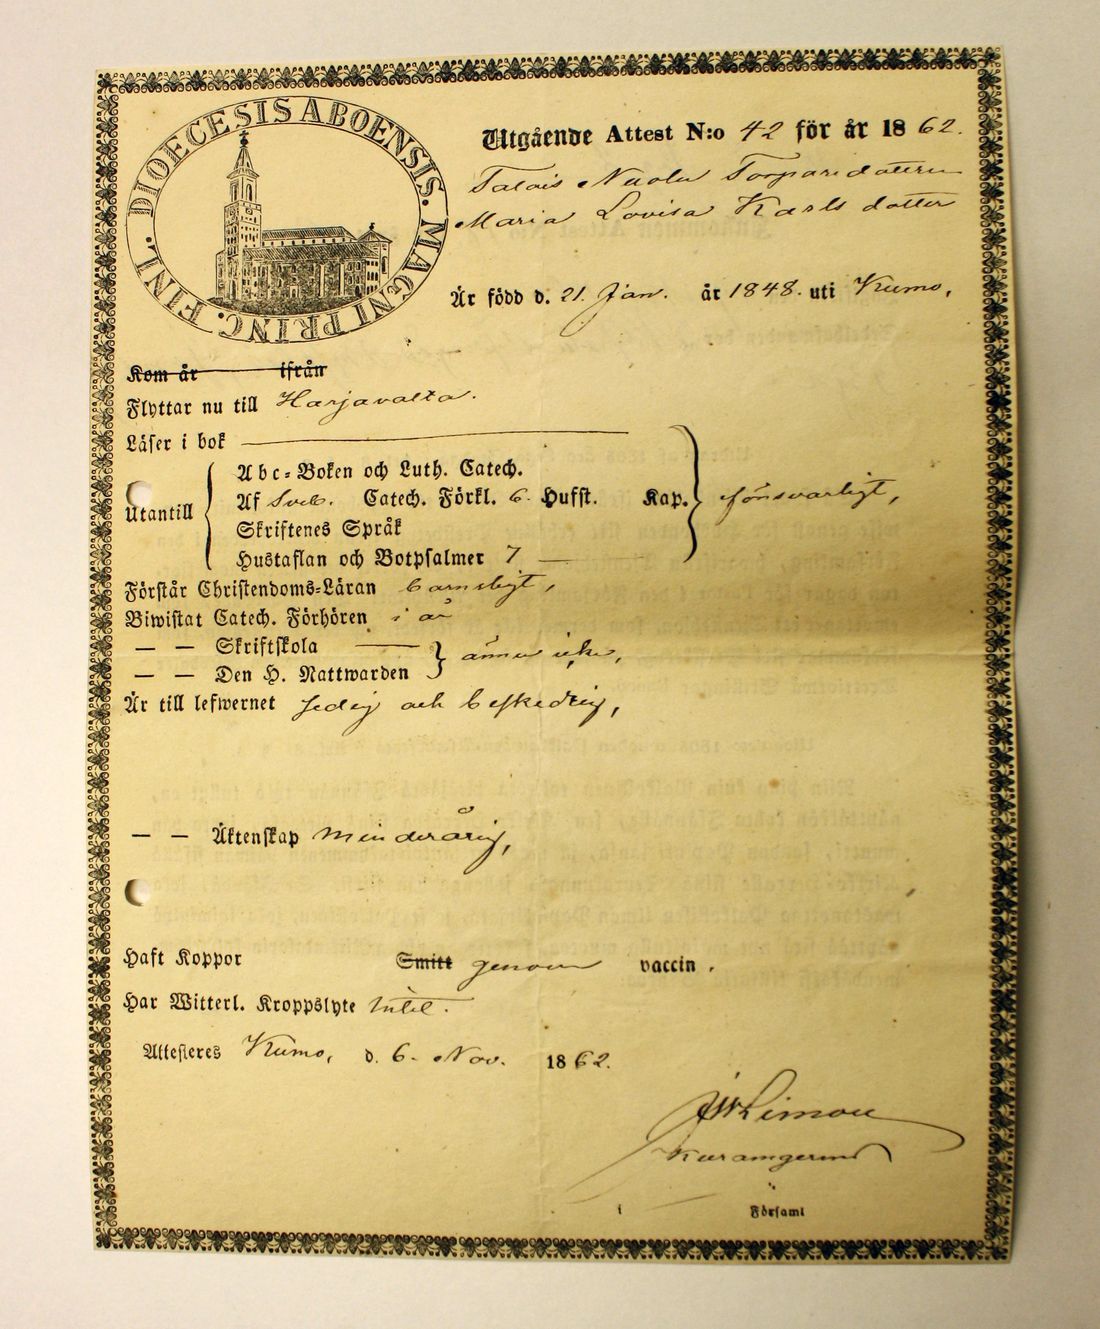 DIOECESIS ABOENSIS. MAGNI PRINC. FINL.
Utgående Attest N:o 42 för år 1862.
Torparedottern
Maria Lovisa Karlsdotter
Är född d. 21. Jan. år 1848. uti Kumo,
Kom år ifrån
Flyttar nu till Harjavalta.
Läser i bok
Utantill
Abc-Boken och Luth. Catech.
Af Sveb. Catech. Förkl. 6. Hufst. Kap. försvarligt,
Skriftenes Språk
Hustaflan och Botpsalmer 7
Förstår Christendoms-Läran barnsligt,
Biwistat Catech. Förhören i år
— — Skriftskola
— — Den H. Nattwarden ännu icke,
Är till lefwernet sedig och beskedlig,
— — Äktenskap minderårig,
Haft Koppor Smitt genom vaccin.
Har Witterl. Kroppslyte intet.
Attesteres Kumo, d. 6. Nov. 1862.
i Församl